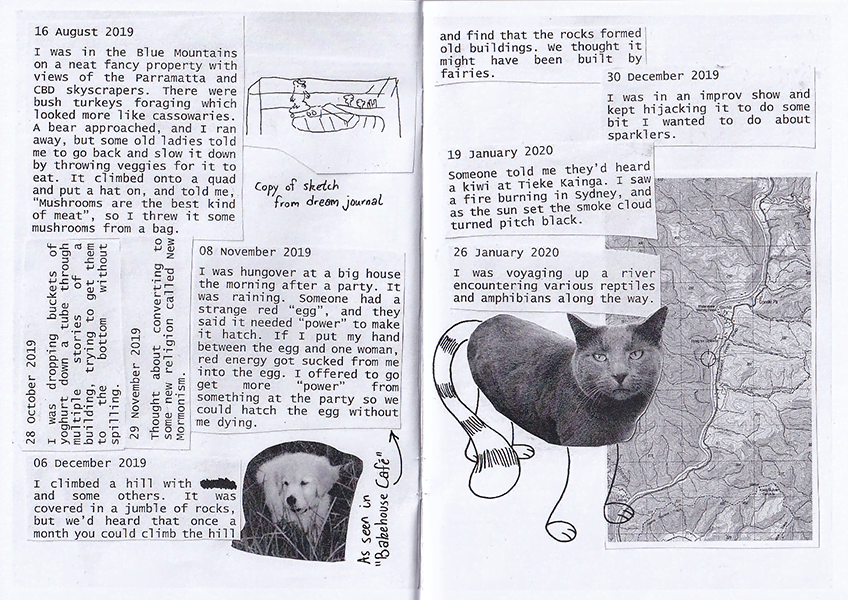 16 August 2019
I was in the Blue Mountains
on a neat fancy property with
views of the Parramatta and
CBD skyscrapers. There were
bush turkeys foraging which
looked more like cassowaries.
A bear approached, and I ran
away, but some old ladies told
me to go back and slow it down
by throwing veggies for it to
eat. It climbed onto a quad
and put a hat on, and told me,
“Mushrooms are the best kind
of meat”, so I threw it some
mushrooms from a bag.
Copy of sketch
from dream journal
28 October 2019
I was dropping buckets of
yoghurt down a tube through
multiple stories of a
building, trying to get them
to the bottom without
spilling.
29 November 2019
Thought about converting to
some new religion called New
Mormonism.
08 November 2019
I was hungover at a big house
the morning after a party. It
was raining. Someone had a
strange red “egg”, and they
said it needed “power” to make
it hatch. If I put my hand
between the egg and one woman,
red energy got sucked from me
into the egg. I offered to go
get more “power” from
something at the party so we
could hatch the egg without
me dying.
06 December 2019
I climbed a hill with
and some others. It was
covered in a jumble of rocks,
but we’d heard that once a
month you could climb the hill
As seen in
"Bakehouse Café"
and find that the rocks formed
old buildings. We thought it
might have been built by
fairies.
30 December 2019
I was in an improv show and
kept hijacking it to do some
bit I wanted to do about
sparklers.
19 January 2020
Someone told me they’d heard
a kiwi at Tieke Kainga. I saw
a fire burning in Sydney, and
as the sun set the smoke cloud
turned pitch black.
26 January 2020
I was voyaging up a river
encountering various reptiles
and amphibians along the way.